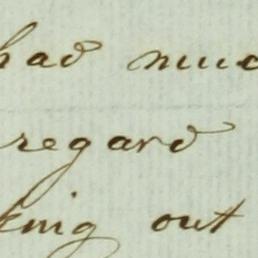 had muc
regard
king out